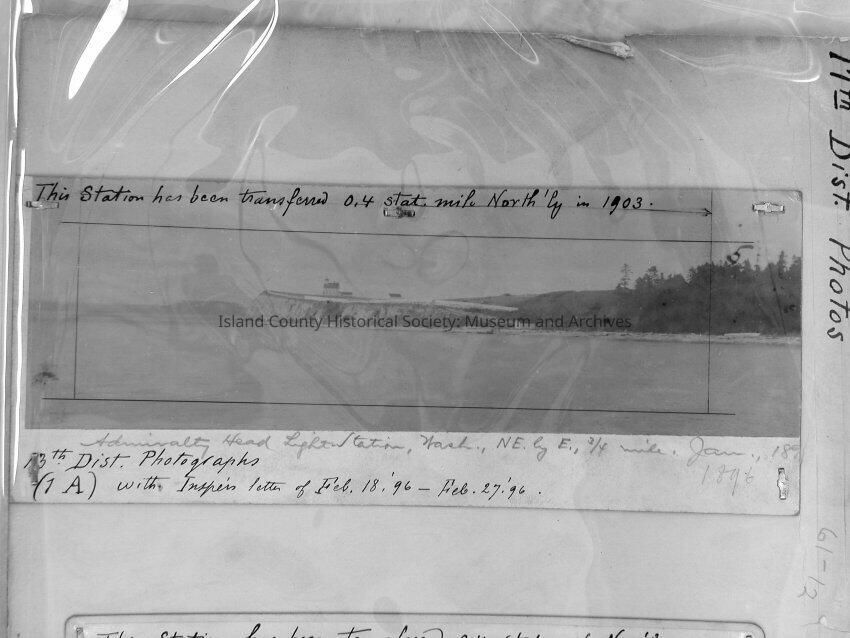 This Station has been transferred 0.4 stat. mile North'ly in 1903.
5
Island County Historical Society: Museum and Archives
Admiralty Head Light Station, Wash., NE. by E., 3/4 mile. Jan., 189
1896
13th Dist. Photographs
(1 A) with Inspr's letter of Feb. 18.'96 — Feb. 27.'96.
17th Dist. Photos
61-12
The Station has been